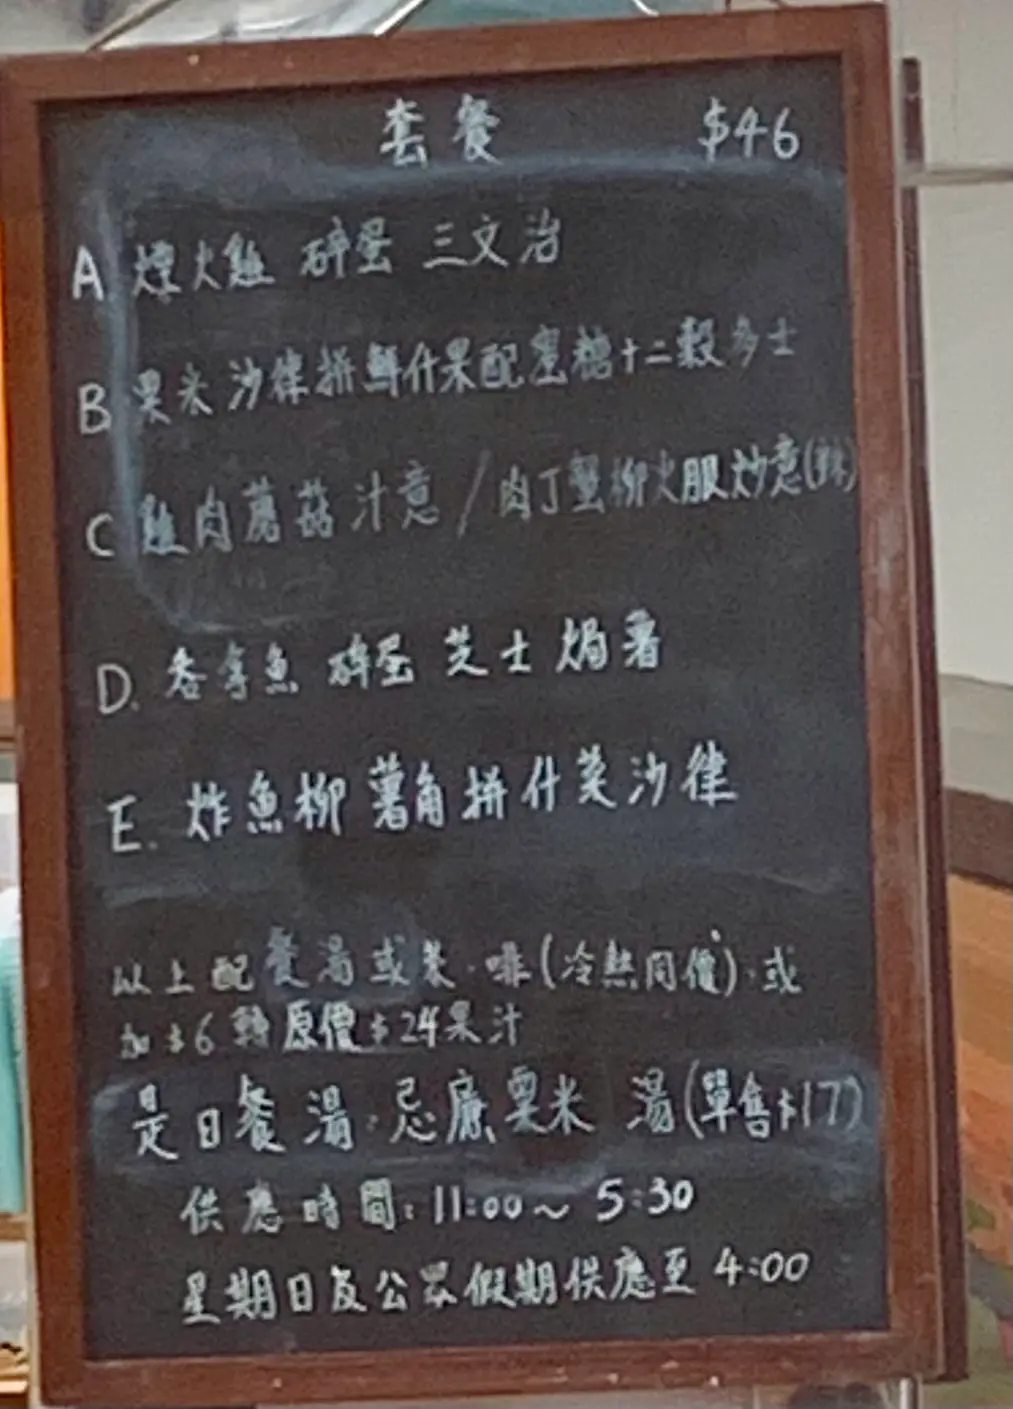 套餐 $46
A 煙火雞 碎蛋 三文治
B 粟米沙律拼鮮什果配蜜糖十二穀多士
C 雞肉蘑菇汁意/肉丁蟹柳火腿炒意(辣)
D. 吞拿魚 碎蛋 芝士 焗薯
E. 炸魚柳 薯角拼什菜沙律
以上配餐湯或茶.啡(冷熱同價).或
加$6轉原價$24果汁
是日餐湯:忌廉粟米 湯(單售$17)
供應時間:11:00~5:30
星期日及公眾假期供應至 4:00